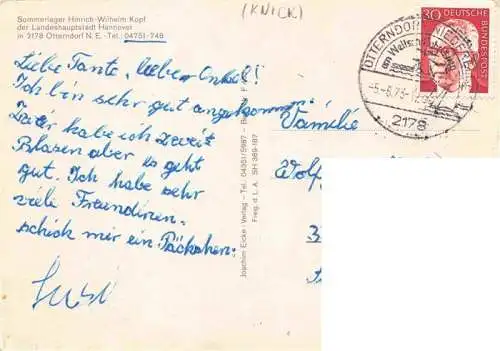 (KNICK)
Sommerlager Hinrich-Wilhelm Kopf
der Landeshauptstadt Hannover
in 2178 Otterndorf N.E. -Tel.: 04751-748
Liebe Tante, lieber Onkel!
Ich bin sehr gut angekommen.
Zwar habe ich zwei
Blasen aber es geht
gut. Ich habe sehr
viele Freundinen.
schick mir ein Päckchen.
Susi
Joachim Eicke · Verlag · Tel. 04351/5997
Freig. d. L. A. SH 369-187
Familie
Wolf
3
OTTERNDORF NIEDERELBE
2178
30
DEUTSCHE
BUNDESPOST